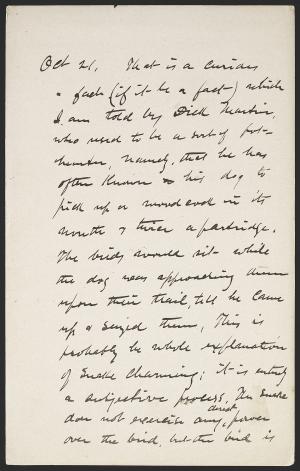 Oct 21. That is a curious
a fact (if it be a fact) which
I am told by Dick Martin,
who used to be a sort of pot-
hunter, namely, that he has
often known his dog to
pick up a woodcock in its
mouth & twice a partridge.
The birds would sit while
the dog was approaching them
upon their trail, till he came
up & seized them, This is
probably the whole explanation
of Snake Charming; it is entirely
a subjective process, The snake
does not exercise any direct power
over the bird, but the bird is